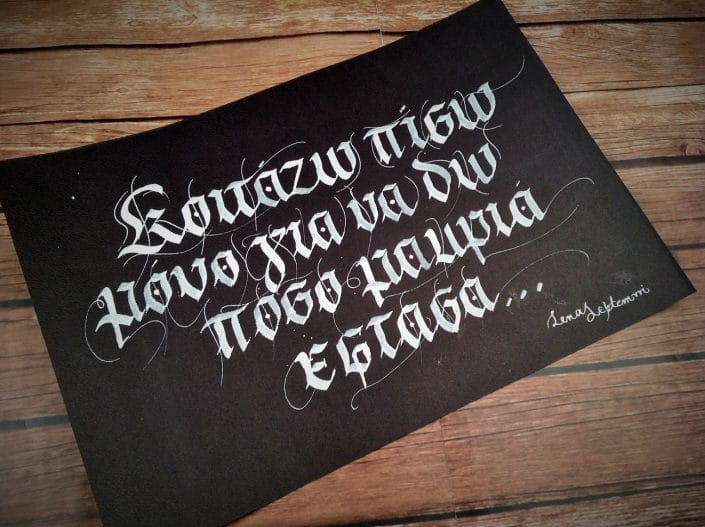 Κοιτάζω πίσω
μόνο για να δω
πόσο μακριά
έφτασα...
Lena Septemvri